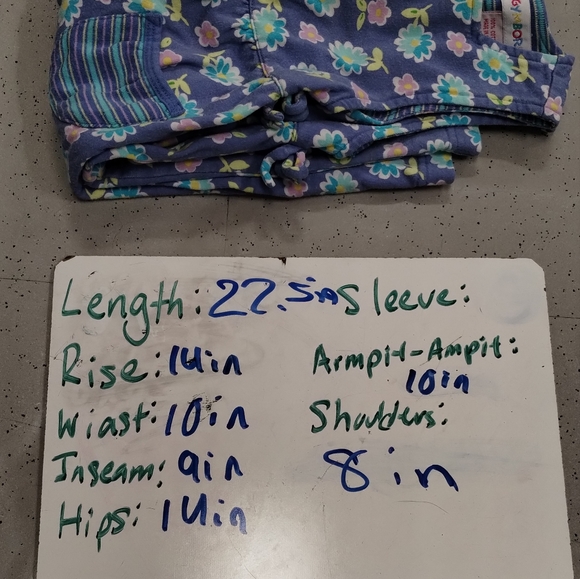 Length: 22.5in Sleeve:
Rise: 14in
Armpit-Ampit:
10in
Wiast: 10in
Shoulders:
8in
Inseam: 9in
Hips: 14in